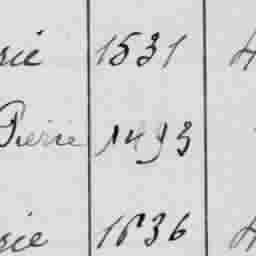 rie 1531 4
Pierre 1493
rie 1536 4